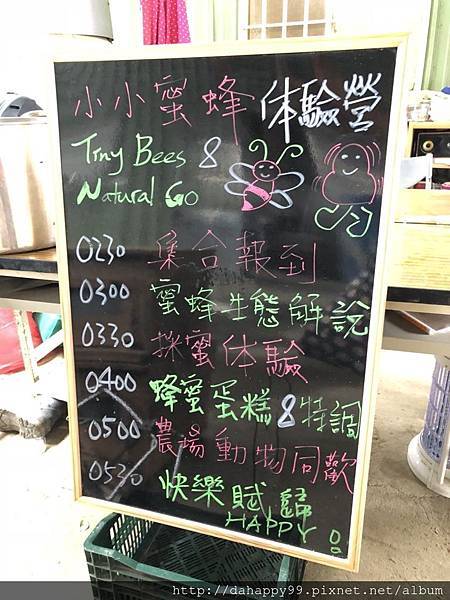 小小蜜蜂 体驗營
Tiny Bees &
Natural Go
0230 集合報到
0300 蜜蜂生態解說
0330 採蜜体驗
0400 蜂蜜蛋糕&特調
0500 農場動物同歡
0530 快樂賦歸
HAPPY!
http://dahappy99.pixnet.net/album